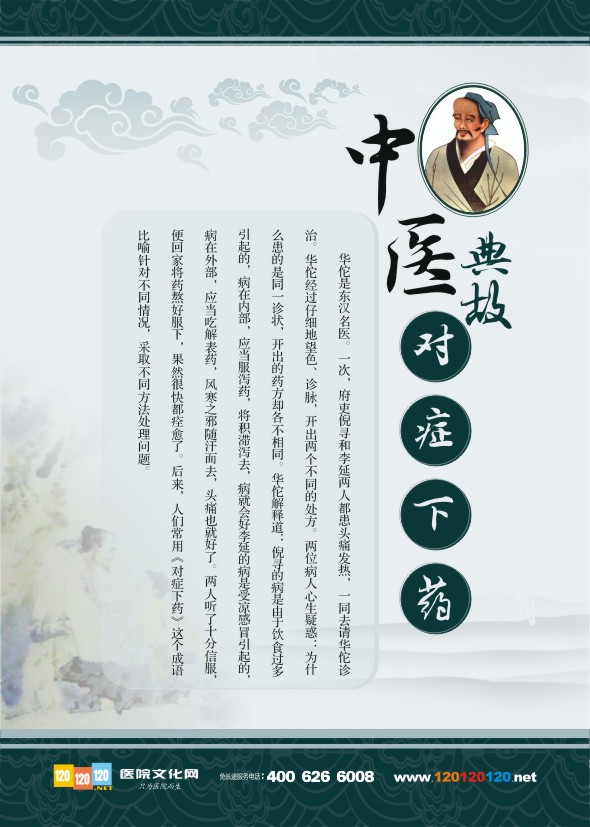 中医
典故
对症下药
华佗是东汉名医。一次，府吏倪寻和李延两人都患头痛发热，一同去请华佗诊
治。华佗经过仔细地望色、诊脉，开出两个不同的处方。两位病人心生疑惑：为什
么患的是同一诊状，开出的药方却各不相同。华佗解释道：倪寻的病是由于饮食过多
引起的，病在内部，应当服泻药，将积滞泻去，病就会好李延的病是受凉感冒引起的，
病在外部，应当吃解表药，风寒之邪随汗而去，头痛也就好了。两人听了十分信服，
便回家将药熬好服下，果然很快都痊愈了。后来，人们常用《对症下药》这个成语
比喻针对不同情况，采取不同方法处理问题。
120 120 120 .NET
医院文化网
只为医院而生
免长途服务电话：400 626 6008
www.120120120.net